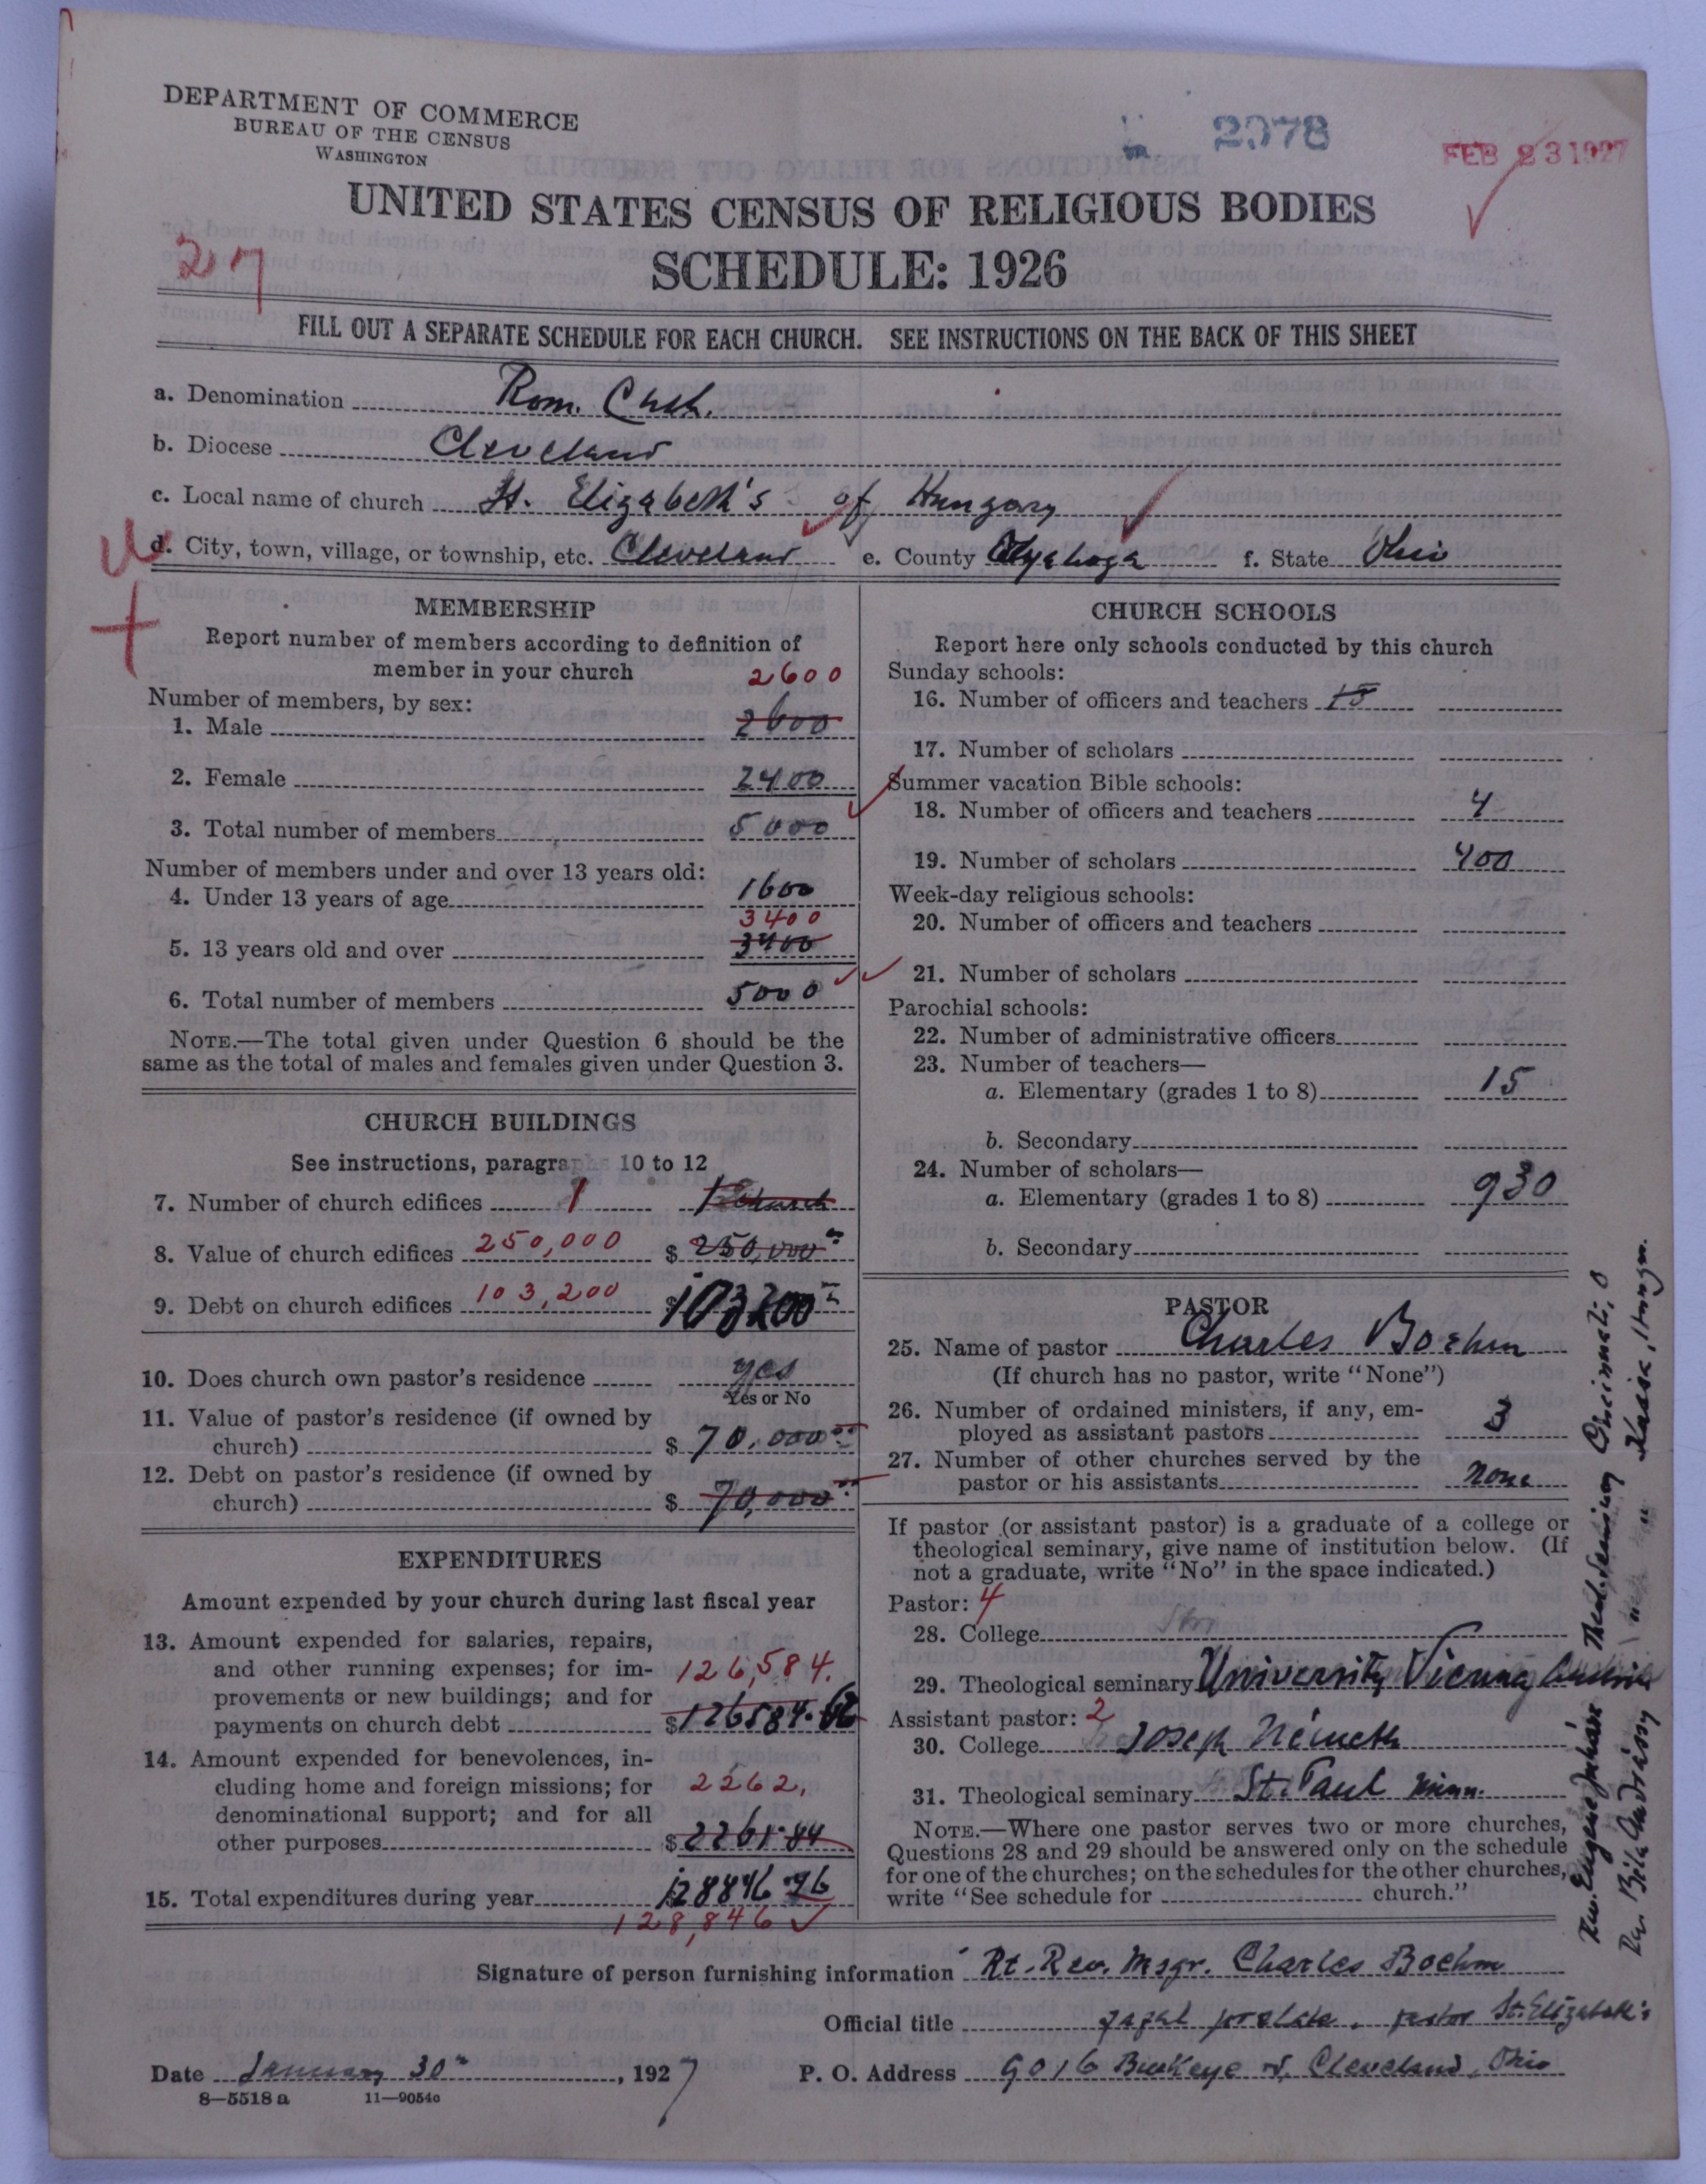 DEPARTMENT OF COMMERCE
BUREAU OF THE CENSUS
WASHINGTON
2078
FEB 23 1927
UNITED STATES CENSUS OF RELIGIOUS BODIES
SCHEDULE: 1926
217
FILL OUT A SEPARATE SCHEDULE FOR EACH CHURCH. SEE INSTRUCTIONS ON THE BACK OF THIS SHEET
a. Denomination Rom. Cath.
b. Diocese Cleveland
c. Local name of church St. Elizabeth's of Hungary
d. City, town, village, or township, etc. Cleveland e. County Cuyahoga f. State Ohio
MEMBERSHIP
Report number of members according to definition of
member in your church
2600
Number of members, by sex:
1. Male 2600
2. Female 2400
3. Total number of members 5000
Number of members under and over 13 years old:
4. Under 13 years of age 1600
3400
5. 13 years old and over 3400
6. Total number of members 5000
NOTE.—The total given under Question 6 should be the
same as the total of males and females given under Question 3.
CHURCH BUILDINGS
See instructions, paragraphs 10 to 12
7. Number of church edifices 1 1 Church
8. Value of church edifices 250,000 $ 250,000
9. Debt on church edifices 103,200 $ 103200
10. Does church own pastor's residence yes
Yes or No
11. Value of pastor's residence (if owned by
church) $ 70,000
12. Debt on pastor's residence (if owned by
church) $ 70,000
EXPENDITURES
Amount expended by your church during last fiscal year
13. Amount expended for salaries, repairs,
and other running expenses; for im-
126,584.
provements or new buildings; and for
payments on church debt $ 126584.62
14. Amount expended for benevolences, in-
cluding home and foreign missions; for
2262,
denominational support; and for all
other purposes $ 2261.84
15. Total expenditures during year 128846
128,846
CHURCH SCHOOLS
Report here only schools conducted by this church
Sunday schools:
16. Number of officers and teachers 15
17. Number of scholars
Summer vacation Bible schools:
18. Number of officers and teachers 4
19. Number of scholars 400
Week-day religious schools:
20. Number of officers and teachers
21. Number of scholars
Parochial schools:
22. Number of administrative officers
23. Number of teachers—
a. Elementary (grades 1 to 8) 15
b. Secondary
24. Number of scholars—
a. Elementary (grades 1 to 8) 930
b. Secondary
PASTOR
25. Name of pastor Charles Boehm
(If church has no pastor, write "None")
26. Number of ordained ministers, if any, em-
ployed as assistant pastors 3
27. Number of other churches served by the
pastor or his assistants none
If pastor (or assistant pastor) is a graduate of a college or
theological seminary, give name of institution below. (If
not a graduate, write "No" in the space indicated.)
Pastor: 4
28. College
29. Theological seminary University Vienna Austria
Assistant pastor: 2
30. College Joseph Németh
31. Theological seminary St. Paul Minn.
NOTE.—Where one pastor serves two or more churches,
Questions 28 and 29 should be answered only on the schedule
for one of the churches; on the schedules for the other churches,
write "See schedule for church."
Rev. Eugene Theol. Seminary Cincinnati, O
Rev. Béla Andrássy " " Hungary.
Signature of person furnishing information Rt. Rev. Msgr. Charles Boehm
Official title papal prelate, pastor St. Elizabeth's
Date January 30th, 1927 P. O. Address 9016 Buckeye Rd, Cleveland, Ohio
8—5518 a 11—9054c